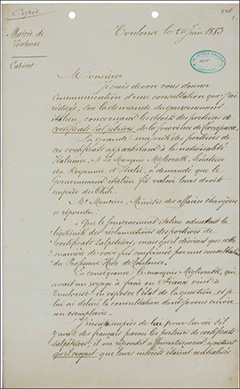 Copie
Mairie de
Toulouse
Cabinet
Toulouse le 20 Juin 1883
Monsieur
Je crois devoir vous donner
communication d'une consultation que j'ai
rédigée, sur la demande du gouvernement
italien, concernant les droits des porteurs de
certificats salpêtriers de la province de Tarapaca.
La grande majorité des porteurs de
ces certificats appartenant à la nationalité
italienne, M. le Marquis
du Royaume d'Italie, a demandé que le
Gouvernement italien fit valoir leurs droits
auprès du Chili.
Mr Mancini, Ministre des affaires étrangères
a répondu
Que le gouvernement italien admettait la
légitimité des réclamations des porteurs de
certificats salpêtriers, mais qu'il désirait que cette
manière de voir fut confirmée par une consultation
du Professeur
En conséquence, le marquis
qui avait un voyage à faire en France, vint à
Toulouse, m'exposer l'état de la question, et je
lui ai délivré la consultation dont je vous envoie
un exemplaire.
auprès de lui, pour savoir s'il
y avait des français parmi les porteurs de certificats
salpêtriers, il me répondit affirmativement, ajoutant
qu'il croyait que leurs intérêts étaient